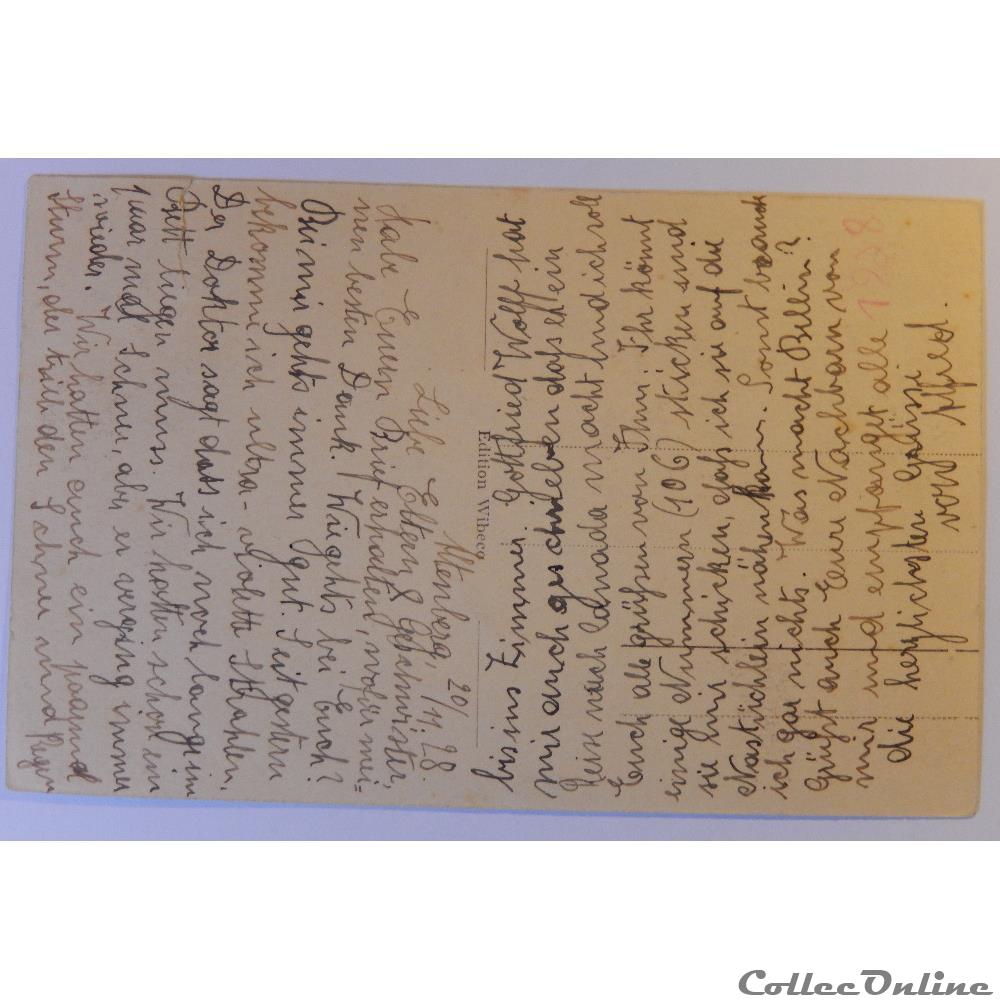 Altenberg, 20/11 28.
Liebe Eltern & Geschwister,
Habe Euern Brief erhalten, wofür mei=
nen besten Dank. Wie gehts bei Euch?
Bei mir gehts immer gut. Seit gestern
bekomme ich ultra-violette Strahlen.
Der Doktor sagt dass ich noch lange im
Bett liegen muss. Wir hatten schon ein
paar mal Schnee, aber er verging immer
wieder. Wir hatten auch ein paarmal
Sturm, der trieb den Schnee und Regen
Edition Wibeco
bis ins Zimmer. Gottfried Wolff hat
mir auch geschrieben dass er ein
Reise nach Canada macht und ich soll
Euch alle grüssen von Ihm. Ihr könnt
einige Nummern (106) sticken und
sie mir schicken, dass ich sie auf die
Nastüchlein nähen kann. Sonst brauch
ich gar nichts. Was macht Bellin?
Grüsst auch Eure Nachbarn von
mir und empfanget alle
die herzlichsten Grüsse
von Alfred.
1928
CollecOnline